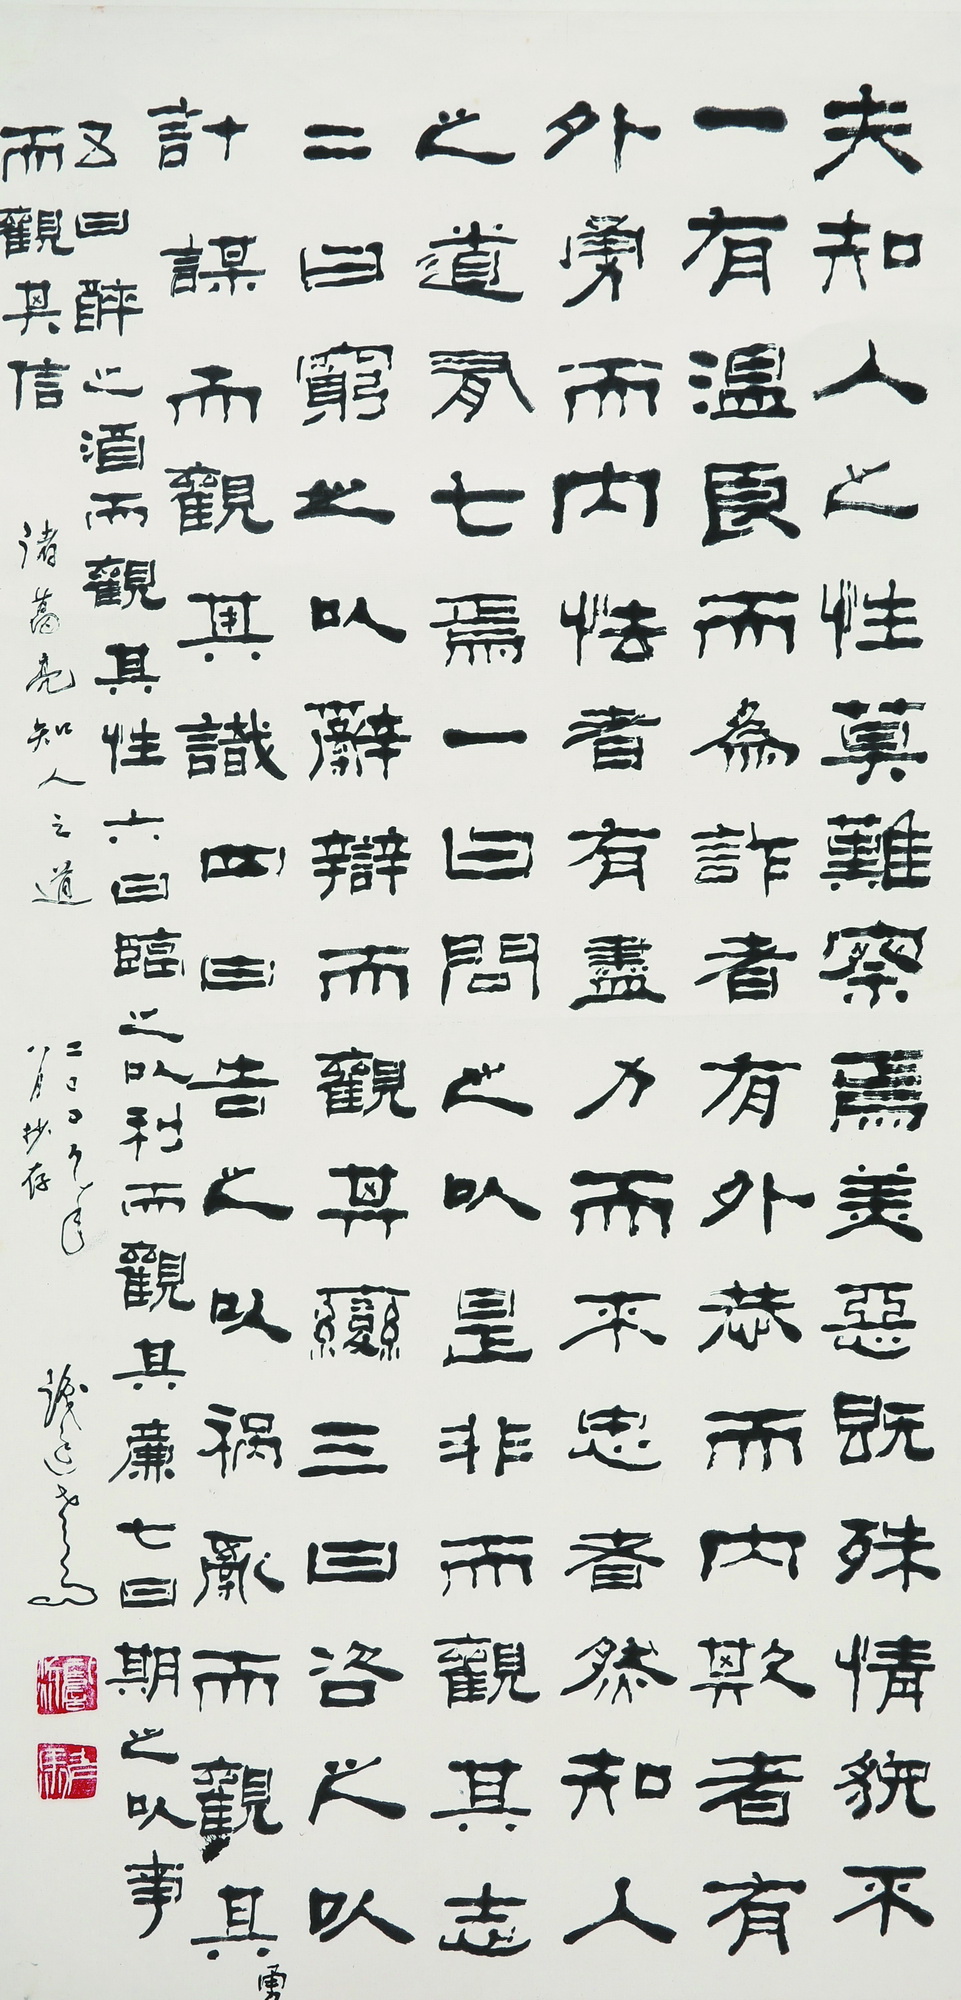 夫知人之性莫難察焉美惡既殊情貌不
一有溫良而為詐者有外恭而內欺者有
外勇而內怯者有盡力而不忠者然知人
之道有七焉一曰問之以是非而觀其志
二曰窮之以辭辯而觀其變三曰咨之以
計謀而觀其識四曰告之以禍亂而觀其
勇
五曰醉之酒而觀其性六曰臨之以利而觀其廉七曰期之以事
而觀其信
諸葛亮知人之道
八月抄存